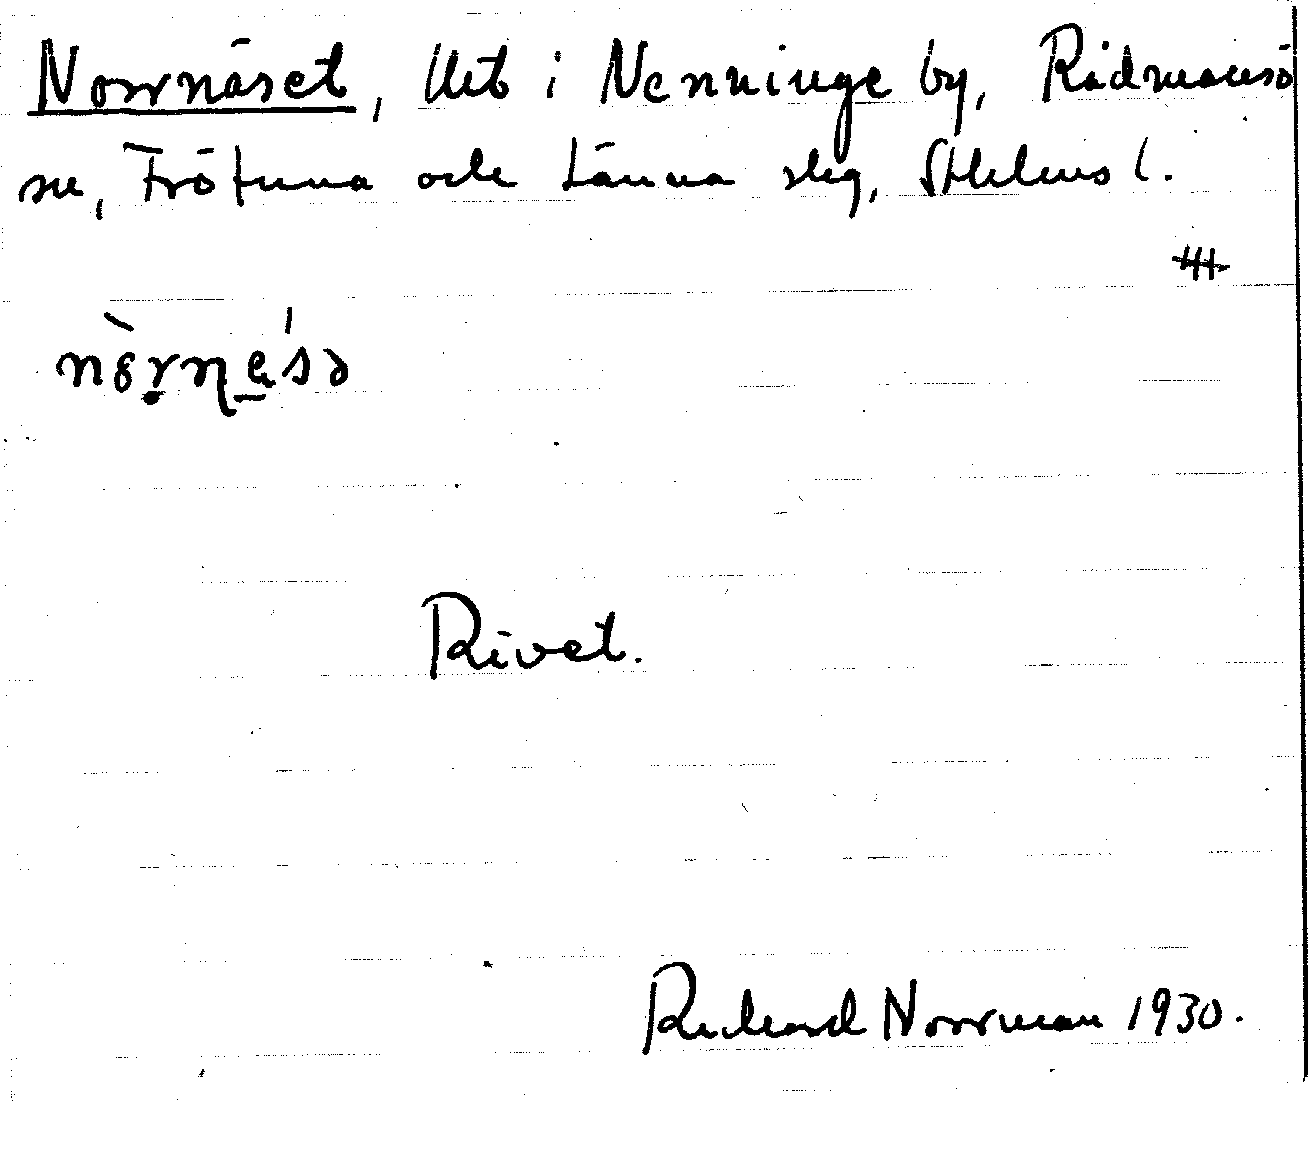 Norrnäset, lht i Nenninge by, Rådmansö
sn, Frötuna och Länna slg, Sthlms l.
Rivet.
Richard Norrman 1930.